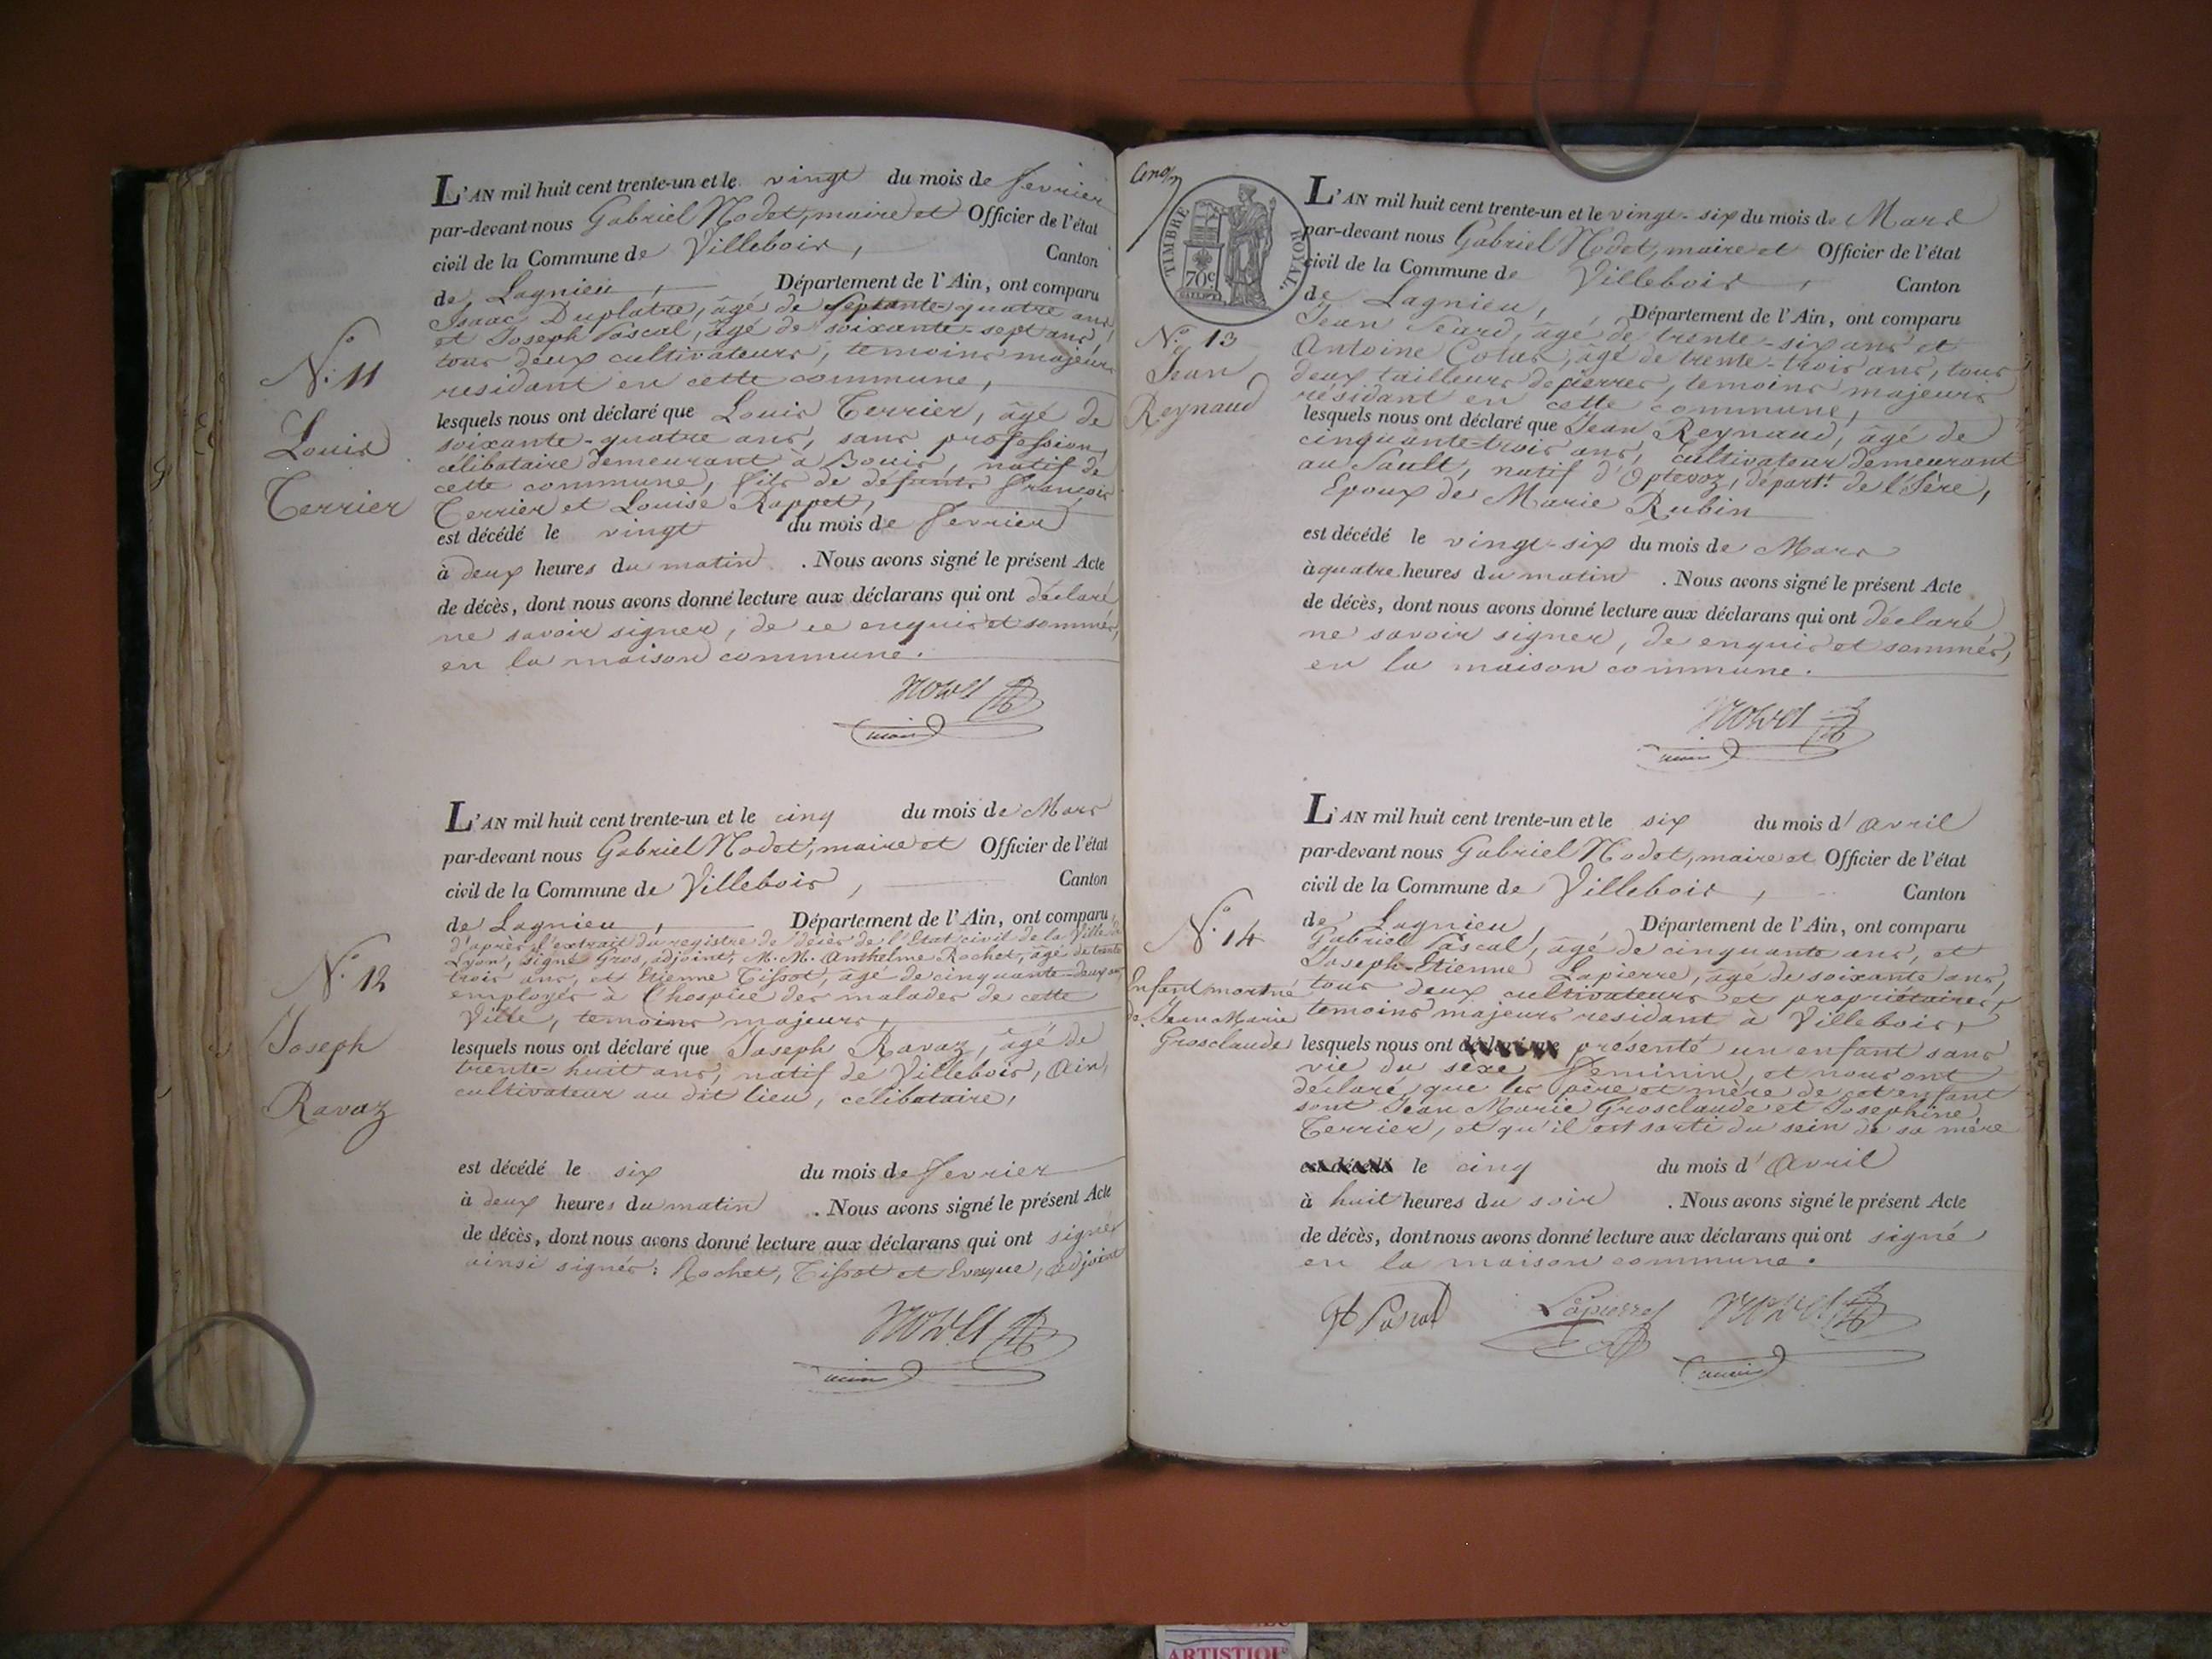 L'AN mil huit cent trente-un et le vingt du mois de fevrier
par-devant nous Gabriel Nodet, maire et Officier de l'état
civil de la Commune de Villebois, Canton
de Lagnieu, Département de l'Ain, ont comparu
Isaac Duplatre, âgé de septante-quatre ans
et Joseph Pascal, âgé de soixante-sept ans,
tous deux cultivateurs, temoins majeurs
residant en cette commune,
N.° 11
Louis
Terrier
lesquels nous ont déclaré que Louis Terrier, âgé de
soixante-quatre ans, sans profession,
célibataire demeurant à Bouis, natif de
cette commune, fils de defunts François
Terrier et Louise Rappet,
est décédé le vingt du mois de fevrier
à deux heures du matin. Nous avons signé le présent Acte
de décès, dont nous avons donné lecture aux déclarans qui ont déclaré
ne savoir signer, de ce enquis et sommés,
en la maison commune.
Nodet
maire
L'AN mil huit cent trente-un et le cinq du mois de Mars
par-devant nous Gabriel Nodet, maire et Officier de l'état
civil de la Commune de Villebois, Canton
de Lagnieu, Département de l'Ain, ont comparu
d'après l'extrait du registre de décès de l'Etat civil de la Ville de
Lyon, signé Gros, adjoint, M.M. Anthelme Rochet, âgé de trente
trois ans, et Etienne Tissot, âgé de cinquante-deux ans
employés à l'hospice des malades de cette
Ville, temoins majeurs,
N.° 12
Joseph
Ravaz
lesquels nous ont déclaré que Joseph Ravaz, âgé de
trente-huit ans, natif de Villebois, Ain,
cultivateur au dit lieu, celibataire,
est décédé le six du mois de fevrier
à deux heures du matin. Nous avons signé le présent Acte
de décès, dont nous avons donné lecture aux déclarans qui ont signés
ainsi signés: Rochet, Tissot et Evesque, adjoint
Nodet
maire
TIMBRE ROYAL.
70c
L'AN mil huit cent trente-un et le vingt-six du mois de Mars
par-devant nous Gabriel Nodet, maire et Officier de l'état
civil de la Commune de Villebois, Canton
de Lagnieu, Département de l'Ain, ont comparu
Jean Seard, âgé de trente-six ans et
Antoine Colas, âgé de trente-trois ans, tous
deux tailleurs de pierres, temoins majeurs
résidant en cette commune,
N.° 13
Jean
Reynaud
lesquels nous ont déclaré que Jean Reynaud, âgé de
cinquante-trois ans, cultivateur demeurant
au Sault, natif d'Optevoz, départ.t de l'Isère,
Epoux de Marie Rubin
est décédé le vingt-six du mois de Mars
à quatre heures du matin. Nous avons signé le présent Acte
de décès, dont nous avons donné lecture aux déclarans qui ont déclaré
ne savoir signer, de enquis et sommés,
en la maison commune.
Nodet
maire
L'AN mil huit cent trente-un et le six du mois d'avril
par-devant nous Gabriel Nodet, maire et Officier de l'état
civil de la Commune de Villebois, Canton
de Lagnieu, Département de l'Ain, ont comparu
Gabriel Pascal, âgé de cinquante ans, et
Joseph-Etienne Lapierre, âgé de soixante ans,
tous deux cultivateurs et propriétaires,
temoins majeurs residant à Villebois,
N.° 14
Enfant mort né
de Jean Marie
Grosclaude
lesquels nous ont déclaré que présenté un enfant sans
vie du sexe feminin, et nous ont
déclaré que les père et mère de cet enfant
sont Jean Marie Grosclaude et Josephine
Terrier, et qu'il est sorti du sein de sa mère
est décédé le cinq du mois d'avril
à huit heures du soir. Nous avons signé le présent Acte
de décès, dont nous avons donné lecture aux déclarans qui ont signé
en la maison commune.
Pascal Lapierre Nodet
maire
ARTISTIQUE